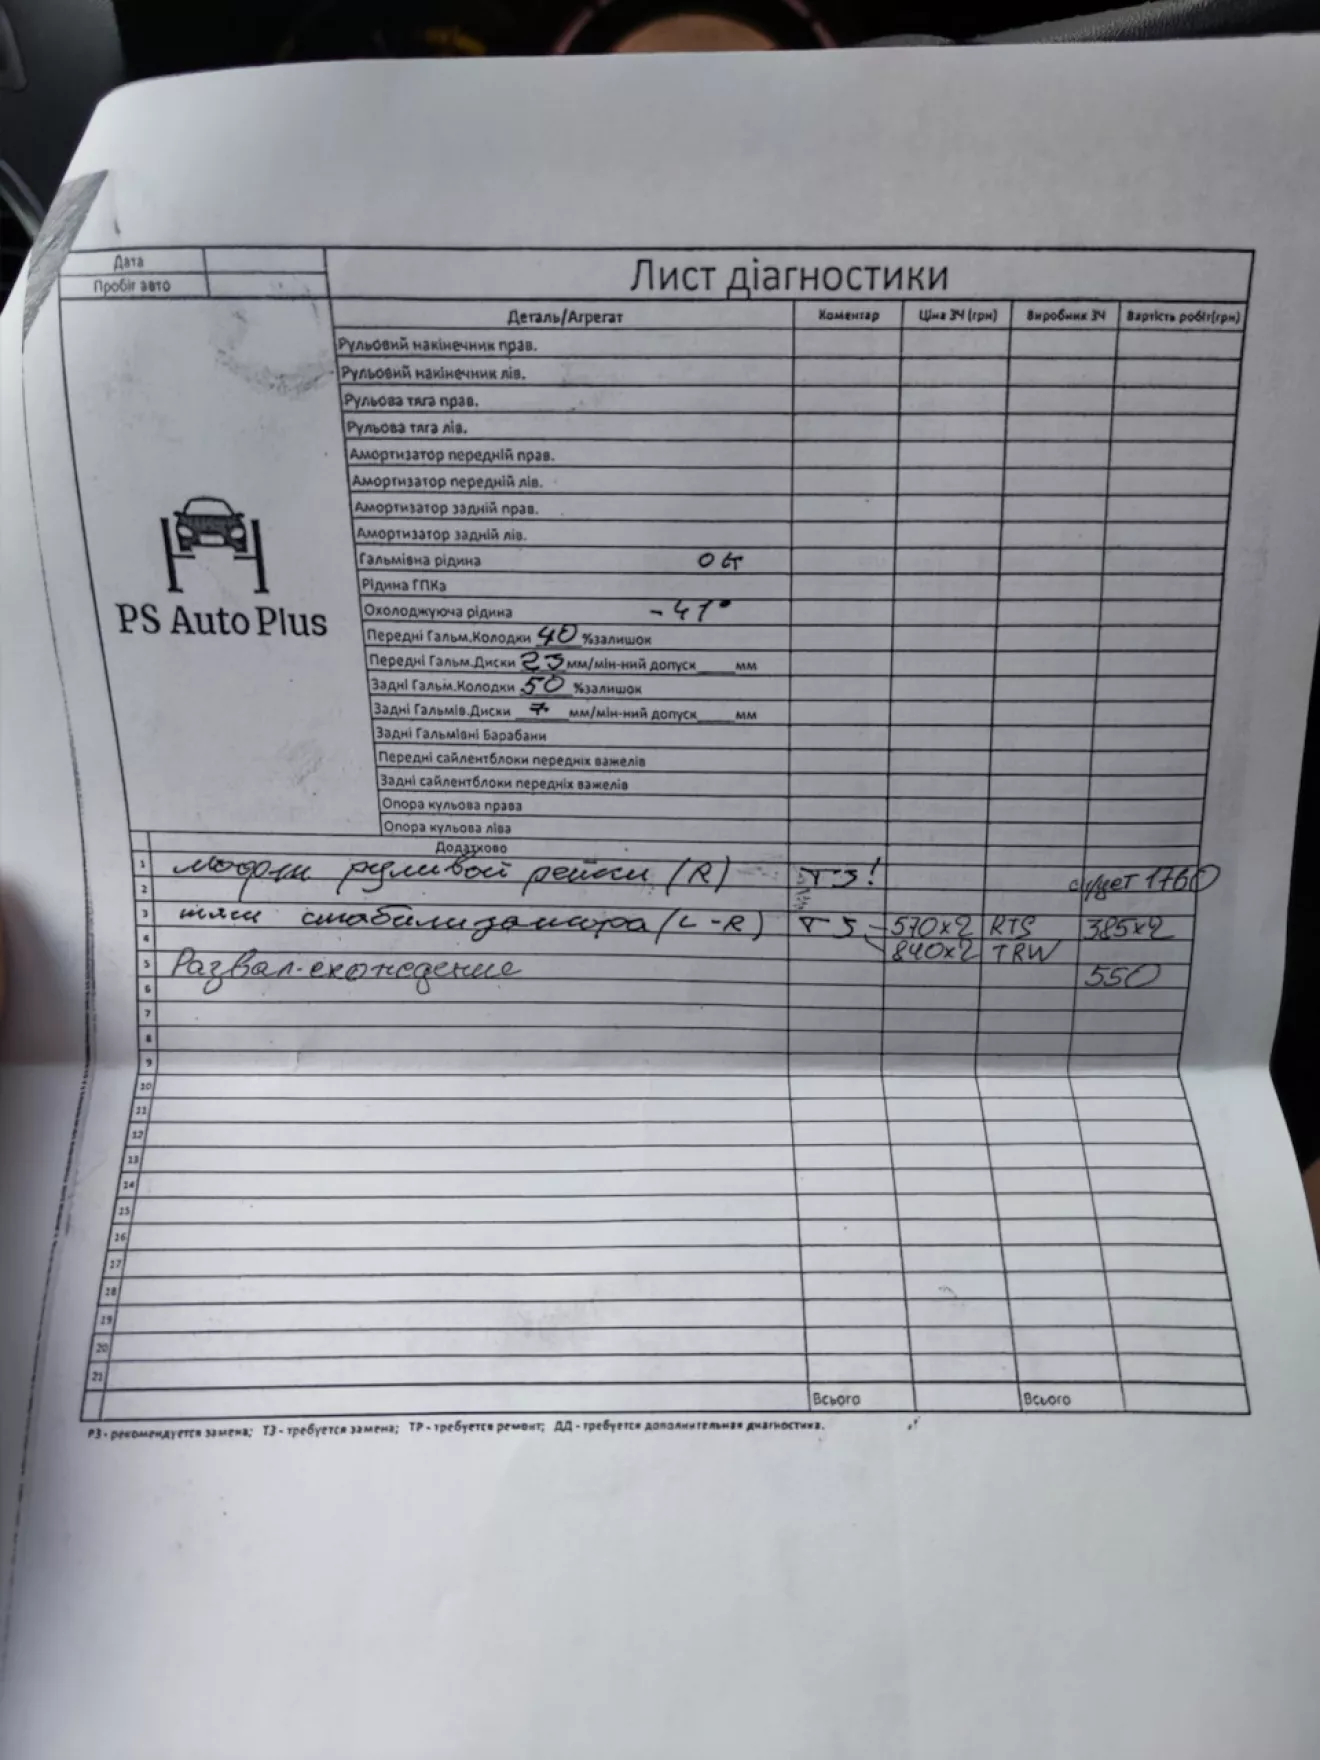 Дата
Пробіг авто
Лист діагностики
Деталь/Агрегат Коментар Ціна ЗЧ (грн) Виробник ЗЧ Вартість робіт(грн)
Рульовий накінечник прав.
Рульовий накінечник лів.
Рульова тяга прав.
Рульова тяга лів.
Амортизатор передній прав.
Амортизатор передній лів.
Амортизатор задній прав.
Амортизатор задній лів.
Гальмівна рідина
Рідина ГПКа
Охолоджуюча рідина -41°
Передні Гальм.Колодки 40 %залишок
Передні Гальм.Диски 23 мм/мін-ний допуск____мм
Задні Гальм.Колодки 50 %залишок
Задні Гальмів.Диски 7 мм/мін-ний допуск____мм
Задні Гальмівні Барабани
Передні сайлентблоки передніх важелів
Задні сайлентблоки передніх важелів
Опора кульова права
Опора кульова ліва
PS Auto Plus
Додатково
1 рулевой рейки (R) ТЗ!
2 1760
3 тяги стабилизатора (L-R) ТЗ 570x2 RTS 385x2
4 840x2 TRW
5 Развал-схождение 550
6
7
8
9
10
11
12
13
14
15
16
17
18
19
20
21
Всього Всього
РЗ - рекомендуется замена; ТЗ - требуется замена; ТР - требуется ремонт; ДД - требуется дополнительная диагностика.